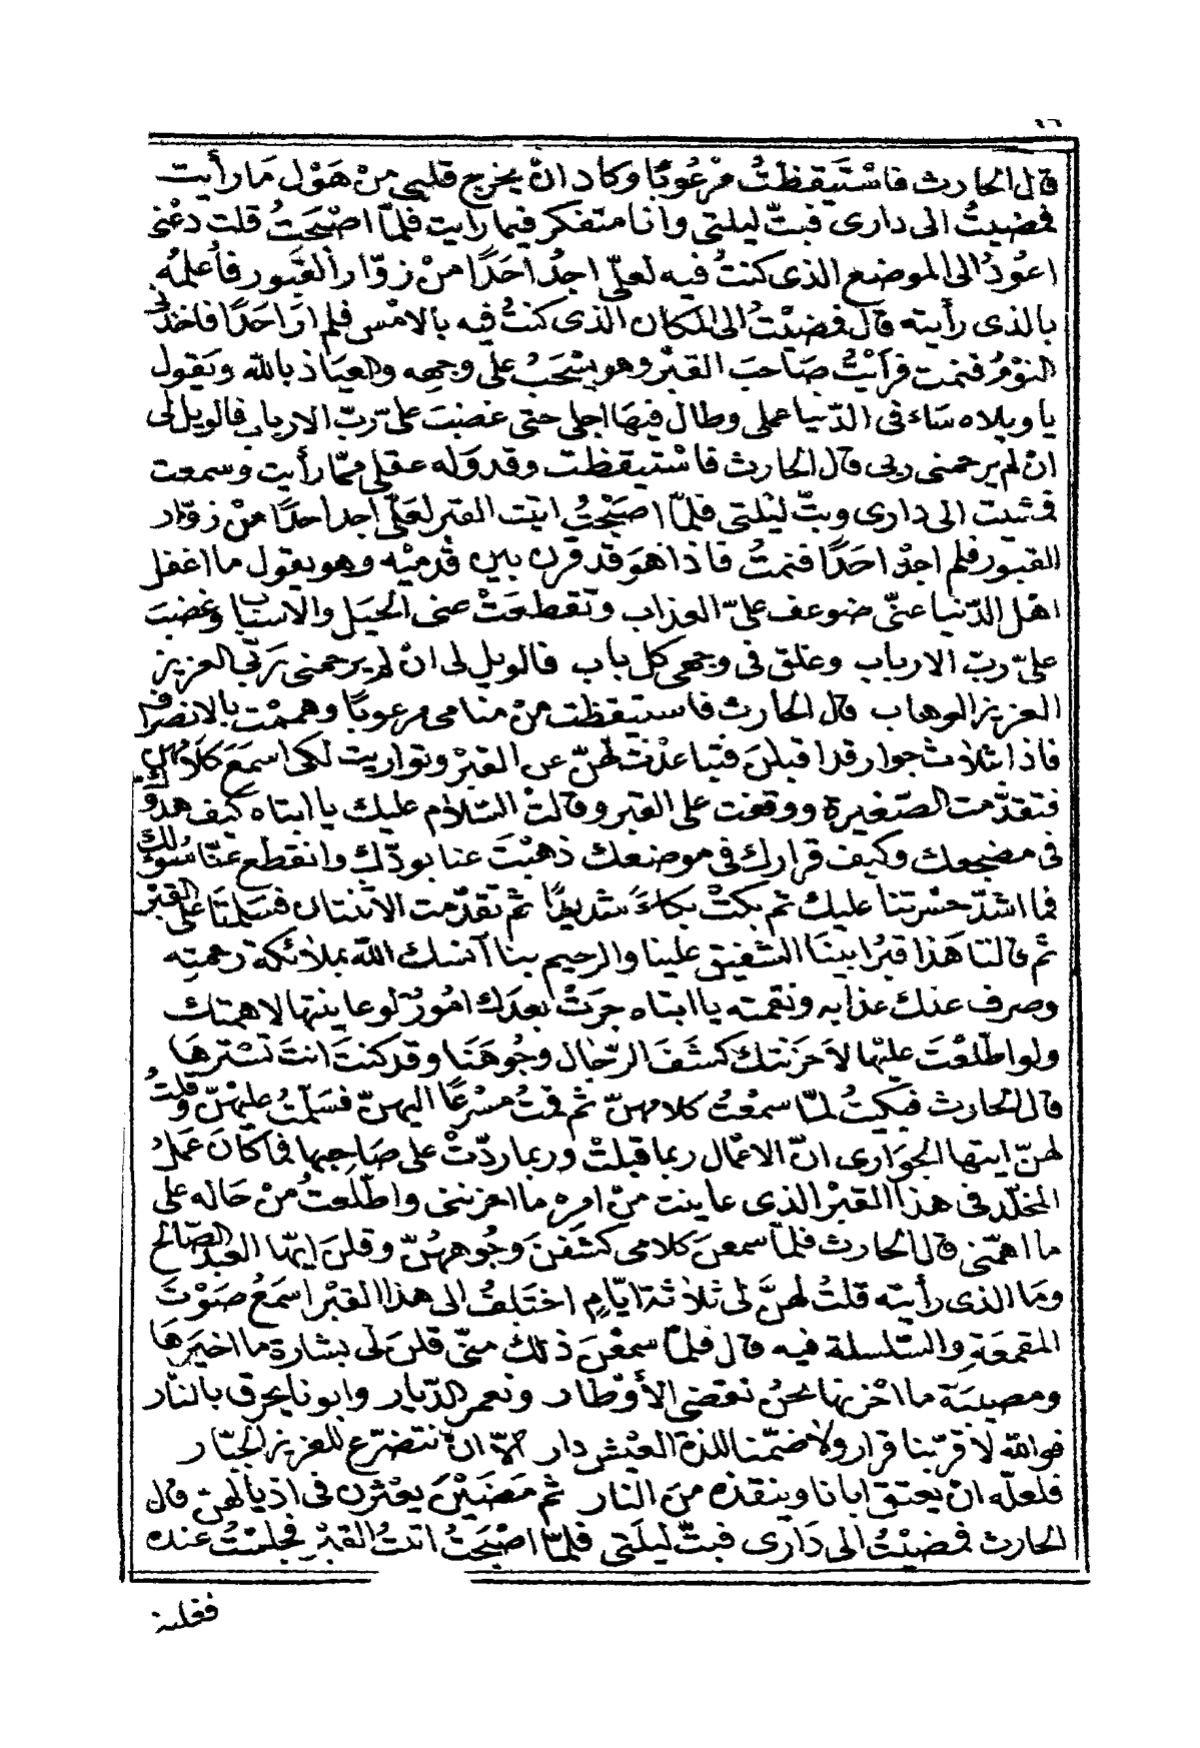 قال الحارث فاسْتَيقظتُ مرْعُوبًا وكاد انْ يخرج قلبي منْ هَوْل مَا رأيت
فمضيتُ الى دارى فبتّ ليلتى وانا متفكر فيما رايت فلمّا اصْبحَتُ قلت دعْنى
اعوُدُ الى الموضع الذى كنتُ فيه لعلّى اجدُ احَدًا منْ زوّار القبور فأعلمُه
بالذى رأيته قال فمضيْتُ الى المكان الذى كنتُ فيه بالامْس فلم ارَ احَدًا فاخذنى
النوْمُ فنمت فرأيْتُ صَاحبَ القبْر وهو يسْحَبُ على وجهه والعيَاذ بالله ويَقول
يا ويلاه سَاء فى الدّنيا عملى وطال فيهَا اجلى حتى غضبَ علىّ ربّ الارباب فالويل لى
انْ لم يرحمنى ربى قال الحارث فاسْتيقظت وقد وَله عقلى ممّا رأيت وسمعت
فمشيت الى دارى وبتّ ليْلتى فلمّا اصبَحْتُ اتيت القبر لعَلّى اجد احدًا منْ زوّار
القبور فلم اجدْ احَدًا فنمتُ فاذا هوَ قد قرن بين قدميْه وهو يقول ما اغفل
اهْل الدّنيا عنّى ضوعف علىّ العذاب وتقطعَتْ عنى الحيَل والاسبَاب وغضبَ
علىّ ربّ الارباب وغلق فى وجهى كل باب فالويل لى انْ لم يرحمنى رَبّى العزيز
العزيز الوهاب قال الحارث فاستيقظت منْ منامى مرعوبًا وهممْت بالانصراف
فاذا بثلاث جوار قد اقبلنَ فتباعدْت لهنّ عن القبْر وتواريت لكى اسمَعَ كلامهن
فتقدّمت الصّغيرة ووقفت على القبر وقالتْ السّلام عليك يا ابتاه كيْف هدوّك
فى مضجعك وكيف قرارك فى موضعك ذهبْتَ عنا بودّك وانقطع عنّا سؤلك
فما اشدّ حسْرتنا عليك ثم بكتْ بكاءً شديدًا ثم تقدّمت الاثنتان فسَلمتَا على القبْر
ثم قالتا هَذا قبرُ ابينَا الشّفيق علينا والرحيم بنا آنسك الله بملائكة رحمته
وصرف عنك عذابه ونقمته يا ابتاه جرَتْ بعدَك امُورٌ لو عاينتها لاهمتك
ولو اطّلعْتَ عليْها لاحَزنتك كشفَ الرّجال وجُوهَنَا وقد كنتَ انتَ تسْترهَا
قال الحارث فبكيْتُ لمّا سمعْتُ كلامهنّ ثم قمتُ مسْرعًا اليهنّ فسَلمتُ عليْهنّ وقلتُ
لهنّ ايتها الجوَارى انّ الاعْمال ربما قبلتْ وربما ردّتْ على صَاحِبها فما كانَ عمَلُ
المخلّد فى هذا القبْر الذى عاينت منْ امره ما احزننى واطّلعتُ منْ حَاله على
ما اهمّنى قال الحارث فلمّا سمعنَ كلامى كشفنَ وجُوههُنّ وقلنَ ايّها العبْد الصّالح
ومَا الذى رأيته قلتُ لهنَّ لى ثلاثة ايّامٍ اختَلفُ الى هذا القبْر اسمَعُ صَوْتَ
المقمعَةِ والسّلسلة فيه قال فلمّا سمعْنَ ذلك منّى قلنَ لى بشارة ما اخيَرهَا
ومصيبَة ما احْزنها نحْنُ نقضى الأوْطار ونعمر الدّيار وابونا يحرق بالنّار
فوالله لا قرّبنا قرار ولا ضمّنا للذة العَيْش دار الّا انْ نتضرّع للعزيز الجبّار
فلعلّه انْ يعتق ابانا وينقذه منَ النار ثم مَضيْنَ يعْثرن فى اذيالهنّ قال
الحارث فمضيْتُ الى دَارى فبتّ ليلَتى فلمّا اصْبحَتُ اتيتُ القبْر فجلسْتُ عنده
فغلبنى